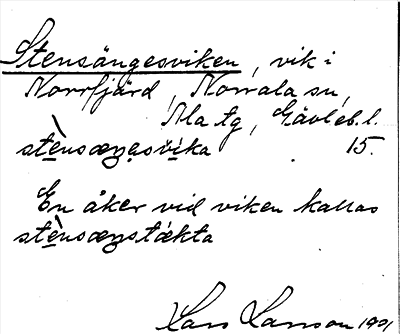 Stensängesviken, vik i
Norrfjärd, Norrala sn,
Ala tg, Gävleb. l.
stènsæŋəsvika 15.
En åker vid viken kallas
stènsæŋstækta
Lars Larsson 1901